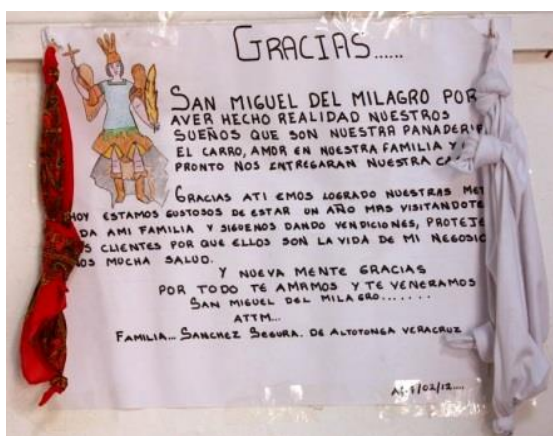 GRACIAS......
SAN MIGUEL DEL MILAGRO POR
AVER HECHO REALIDAD NUESTROS
SUEÑOS QUE SON NUESTRA PANADERIA
EL CARRO, AMOR EN NUESTRA FAMILIA Y
PRONTO NOS ENTREGARAN NUESTRA
GRACIAS ATI EMOS LOGRADO NUESTRAS
HOY ESTAMOS GUSTOSOS DE ESTAR UN AÑO MAS VISITANDOTE
DA AMI FAMILIA Y SIGUENOS DANDO VENDICIONES, PROTEJE
CLIENTES POR QUE ELLOS SON LA VIDA DE MI NEGOSIO
MUCHA SALUD.
Y NUEVA MENTE GRACIAS
POR TODO TE AMAMOS Y TE VENERAMOS
SAN MIGUEL DEL MILAGRO.......
ATTM...
FAMILIA... SANCHEZ SEGURA. DE ALTOTONGA VERACRUZ
/02/12....